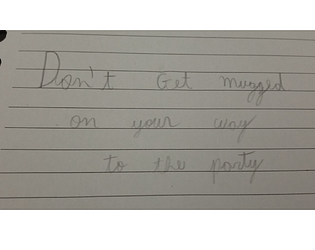 Don't Get mugged
on your way
to the party